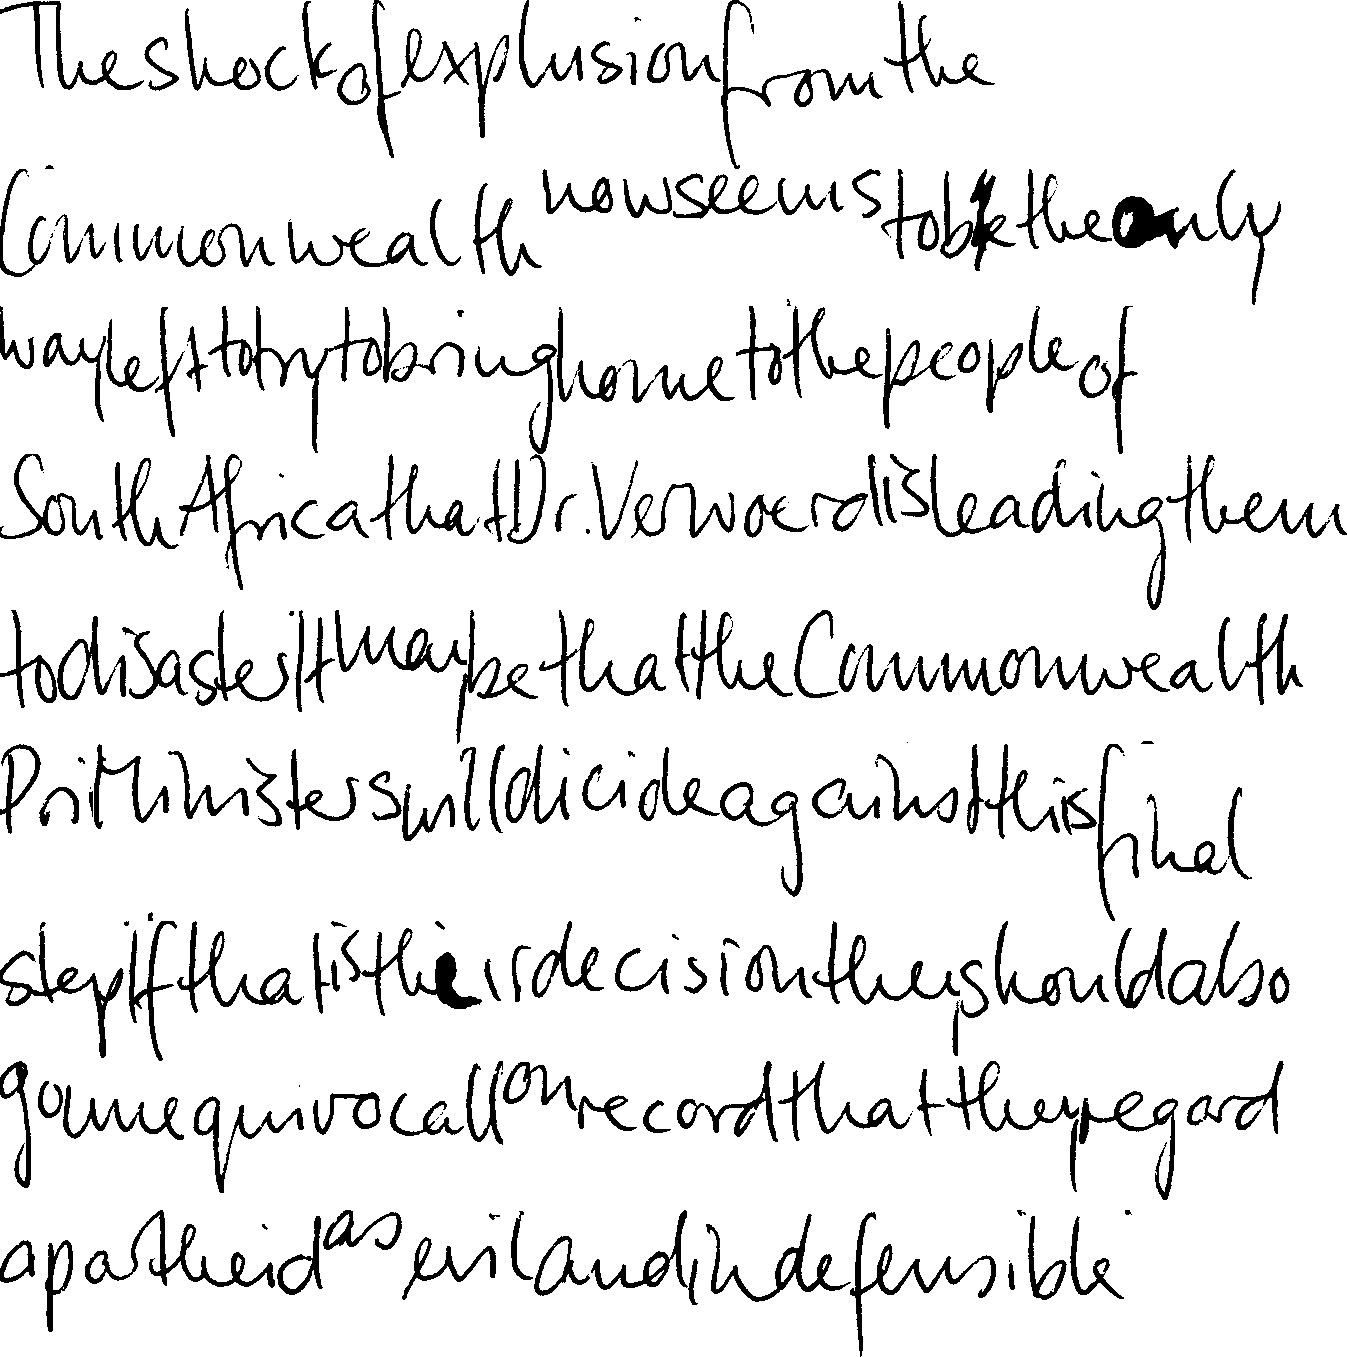 The shock of explusion from the
Commonwealth now seems to be the only
way left to try to bring home to the people of
South Africa that Dr. Verwoerd is leading them
to disaster It may be that the Commonwealth
Prit Ministers will dicide against this final
step If that is their decision they should also
go unequivocall on record that they regard
apartheid as evil and indefensible